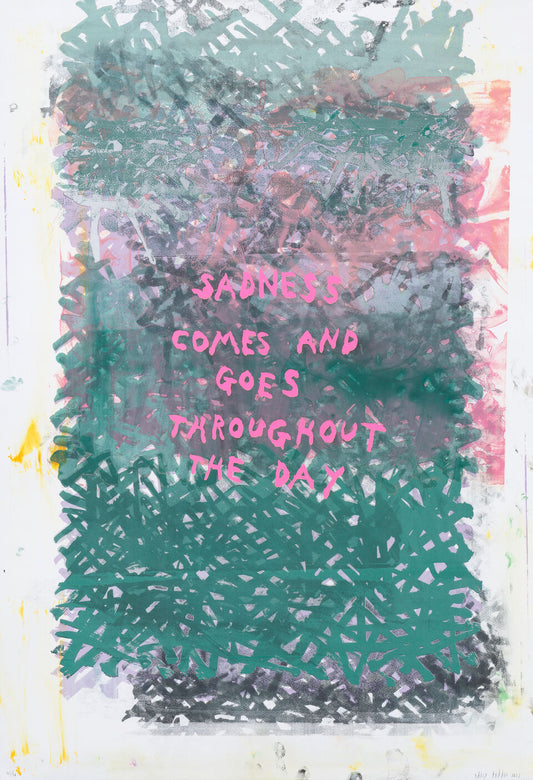 SADNESS
COMES AND
GOES
THROUGHOUT
THE DAY